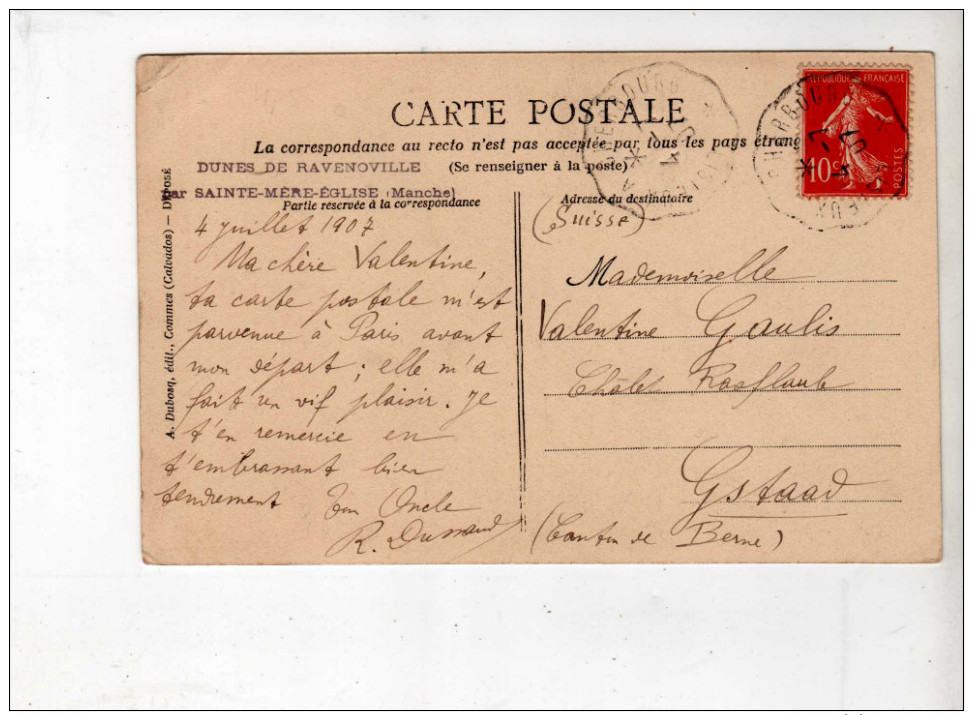 CARTE POSTALE
La correspondance au recto n'est pas acceptée par tous les pays étrang
DUNES DE RAVENOVILLE
(Se renseigner à la poste)
par SAINTE-MÈRE-ÉGLISE (Manche)
Partie reservée à la correspondance
Adresse du destinatoire
4 juillet 1907
Ma chère Valentine,
ta carte postale m'est
parvenue à Paris avant
mon départ ; elle m'a
fait un vif plaisir. Je
t'en remercie en
t'embrassant bien
tendrement Ton Oncle
R. Dussaud
(Suisse)
Mademoiselle
Valentine Gaulis
Chalet
Gstaad
(Canton de Berne)
A. Dubosq, édit., Commes (Calvados) — DÉPOSÉ
REPUBLIQUE FRANÇAISE
10c
POSTES
CHERBOURG
CHERBOURG